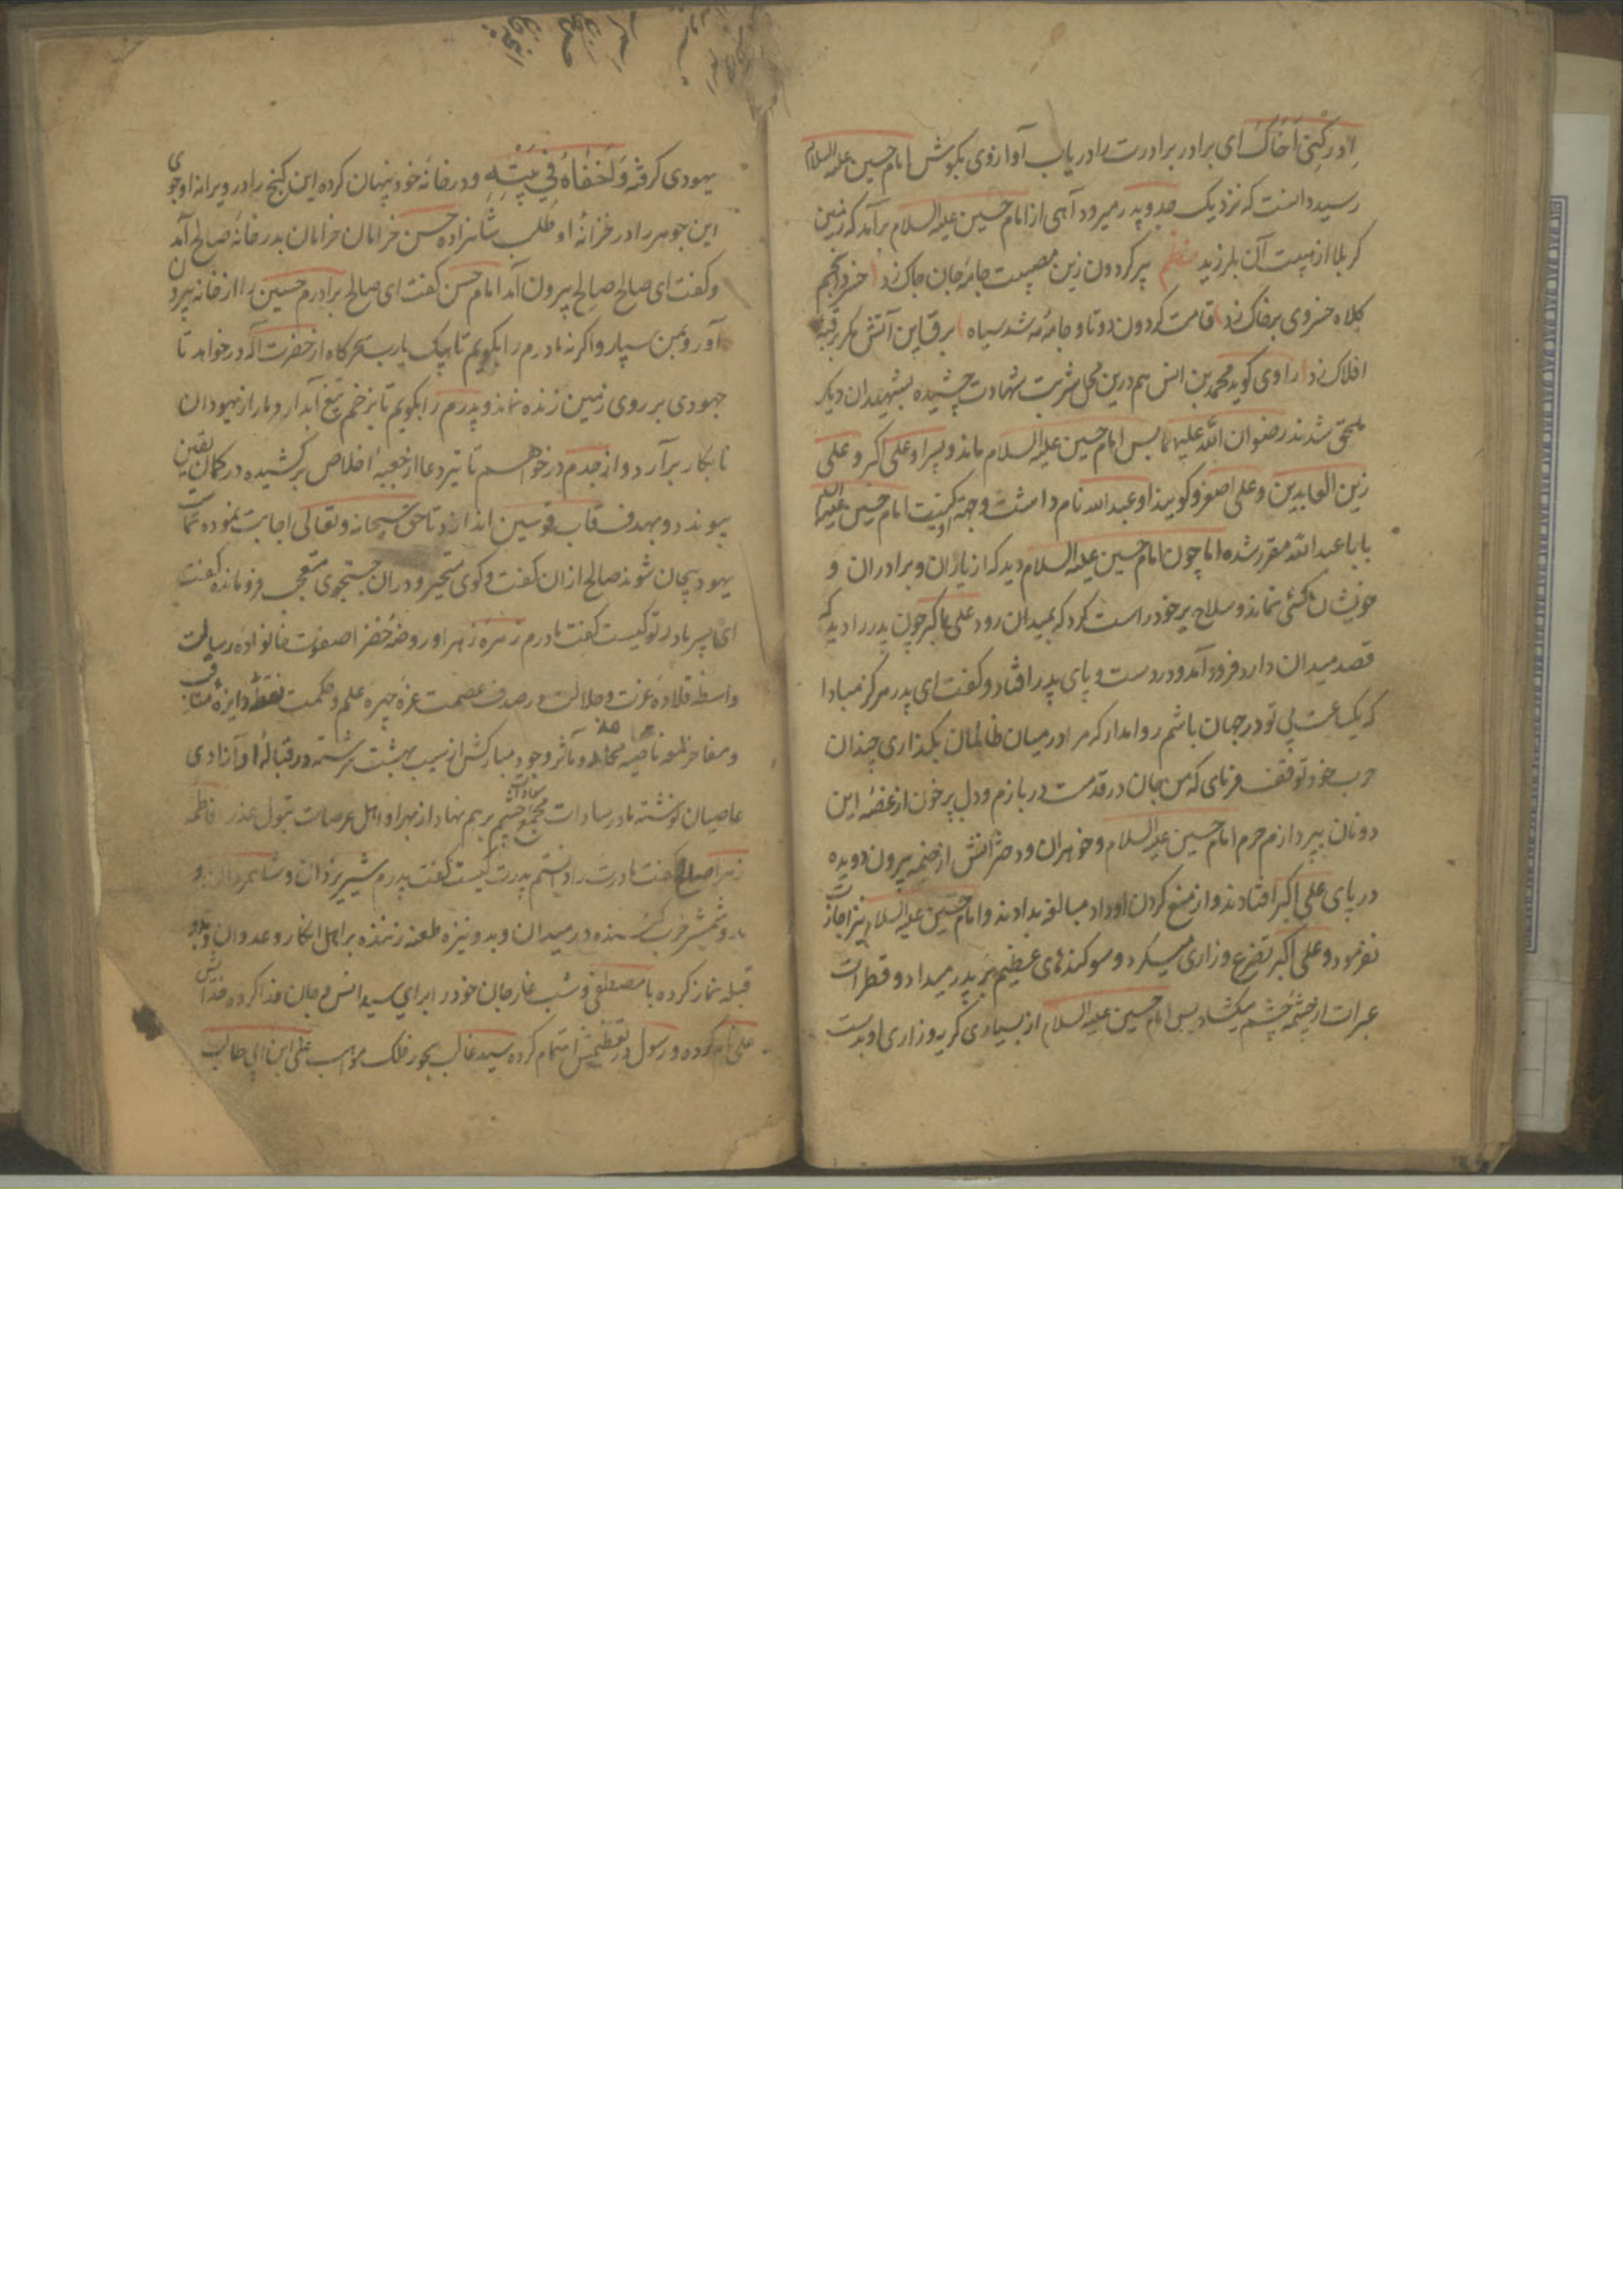 ادرکنی اخاک ای برادر برادرت را دریاب آوازوی بگوش امام حسین علیه السلام
رسید دانست که نزدیک جد و پدر میرود آهی از امام حسین علیه السلام برآمد که زمین
کربلا از هیبت آن بلرزید نظم پیر کردون زین مصیبت جامه جان چاک زد خسرو انجم
کلاه خسروی بر خاک زد قامت کردون دوتا و جامه مه شد سیاه برق این آتش مکر بر قبه
افلاک زد راوی کوید محمد بن انس هم درین محل شربت شهادت چشیده بشهیدان دیکر
ملحق شدند رضوان الله علیهما پس امام حسین علیه السلام ماند و پسر او علی اکبر و علی
زین العابدین و علی اصغر و کویند او عبدالله نام داشت وجهة کنیت امام حسین علیه السلام
بابا عبدالله مقرر شده اما چون امام حسین علیه السلام دید که از یاران و برادران و
خویشان کسی نماند و سلاح بر خود راست کرد که بمیدان رود علی اکبر چون پدر را دید که
قصد میدان دارد فرود آمد و در دست و پای پدر افتاد و کفت ای پدر هرکز مبادا
که یک ساعت بی تو در جهان باشم روا مدار که مرا در میان ظالمان بکذاری چندان
حرب خود توقف فرمای که من جان در قدمت دربازم و دل پرخون از غصه این
دونان بپردازم حرم امام حسین علیه السلام و خواهران و دخترانش از خیمه بیرون دویده
در پای علی اکبر افتادند و از منع کردن او داد مبالغه بدادند و امام حسین علیه السلام نیز اجازت
نفرمود و علی اکبر تضرع و زاری میکرد و سوکندهای عظیم بر پدر میداد و قطرات
عبرات از چشمه چشم میکشاد پس امام حسین علیه السلام از بسیاری کریه و زاری او بدست
یهودی کرفته وَاَخفاهُ فِی بَیتِهِ و در خانه خود پنهان کرده این کنج را در ویرانه او جوی
این جوهر را در خزانه او طلب شاهزاده حسن خرامان خرامان بدر خانه صالح آمد
و کفت ای صالح صالح بیرون آمد امام حسن کفت ای صالح برادرم حسین را از خانه بیرون
آور و بمن سپار و اکرنه مادرم را بکویم تا بیک یارب سحرکاه از حضرت اله درخواهد تا
جهودی بر روی زمین زنده نماند و پدرم را بکویم تا بزخم تیغ آبدار دمار از یهودان
نابکار برآرد و از جدم درخواهم تا تیر دعا از جعبه اخلاص برکشیده در کمان یقین
پیوندد و بهدف قاب قوسین اندازد تا حق سبحانه و تعالی اجابت نموده
یهود بیجان شوند صالح از ان کفت و کوی متحیر و در ان جستجوی متعجب فرومانده کفت
ای پسر مادر تو کیست کفت مادرم زهره زهرا و روضه خضرا صفوت خانواده رسالت
واسطه قلاده عزت و جلالت در صدف عصمت غره چهره علم و حکمت نقطه دایره مناقب
و مفاخر لمعه ناصیه محامد و مآثر وجود مبارکش از سیب بهشت سرشته و در قباله او آزادی
عاصیان نوشته مادر سادات مجمع سعادات چشم برهم نهاد از بهر او اهل عرصات بتول عذرا فاطمه
زهرا صالح کفت مادرت را دانستم پدرت کیست کفت پدرم شیر یزدان و شاه مردان
و شمشیر حرب کننده در میدان و بدو نیزه طعنه زننده بر اهل انکار و عدوان و بدو
قبله نماز کرده با مصطفی و شب غار جان خود را برای سید انس و جان فدا کرده خدایش
علی نام کرده و رسول در تعظیمش اهتمام کرده سید غالب علی ابن ابی طالب